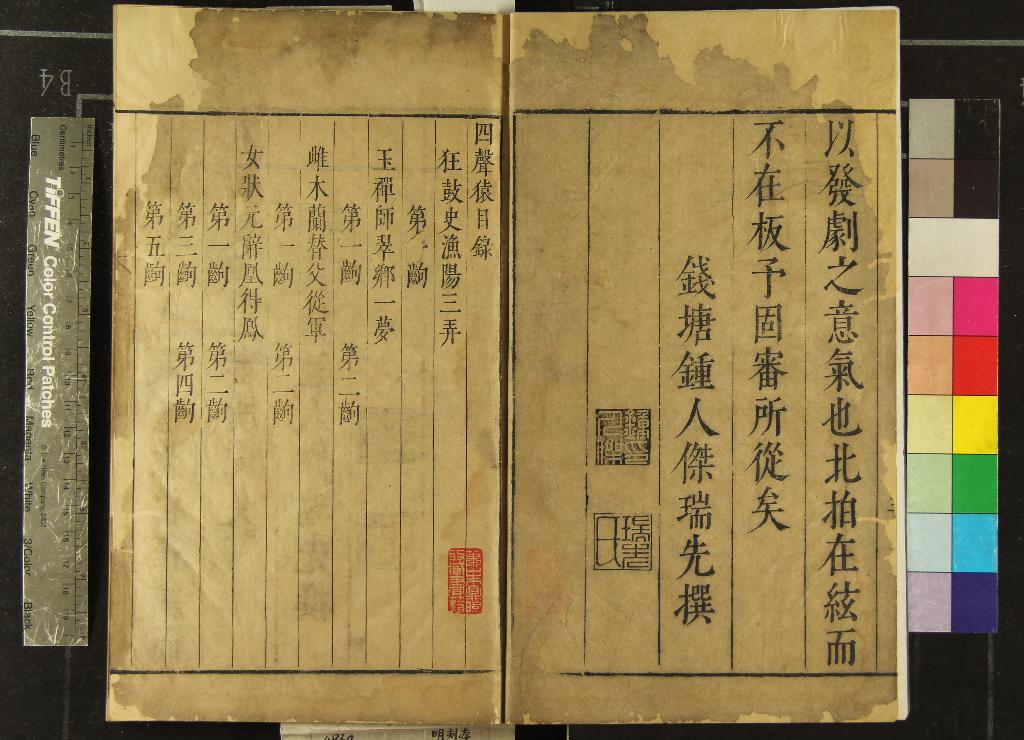 以發劇之意氣也北拍在絃而
不在板予固審所從矣
錢塘鍾人傑瑞先撰
四聲猿目錄
狂鼓史漁陽三弄
第一齣
玉禪師翠鄉一夢
第一齣 第二齣
雌木蘭替父從軍
第一齣 第二齣
女狀元辭凰得鳳
第一齣 第二齣
第三齣 第四齣
第五齣
B4
inches
Centimetres
TIFFEN Color Control Patches
© The Tiffen Company, 2007
Blue Cyan Green Yellow Red Magenta White 3/Color Black